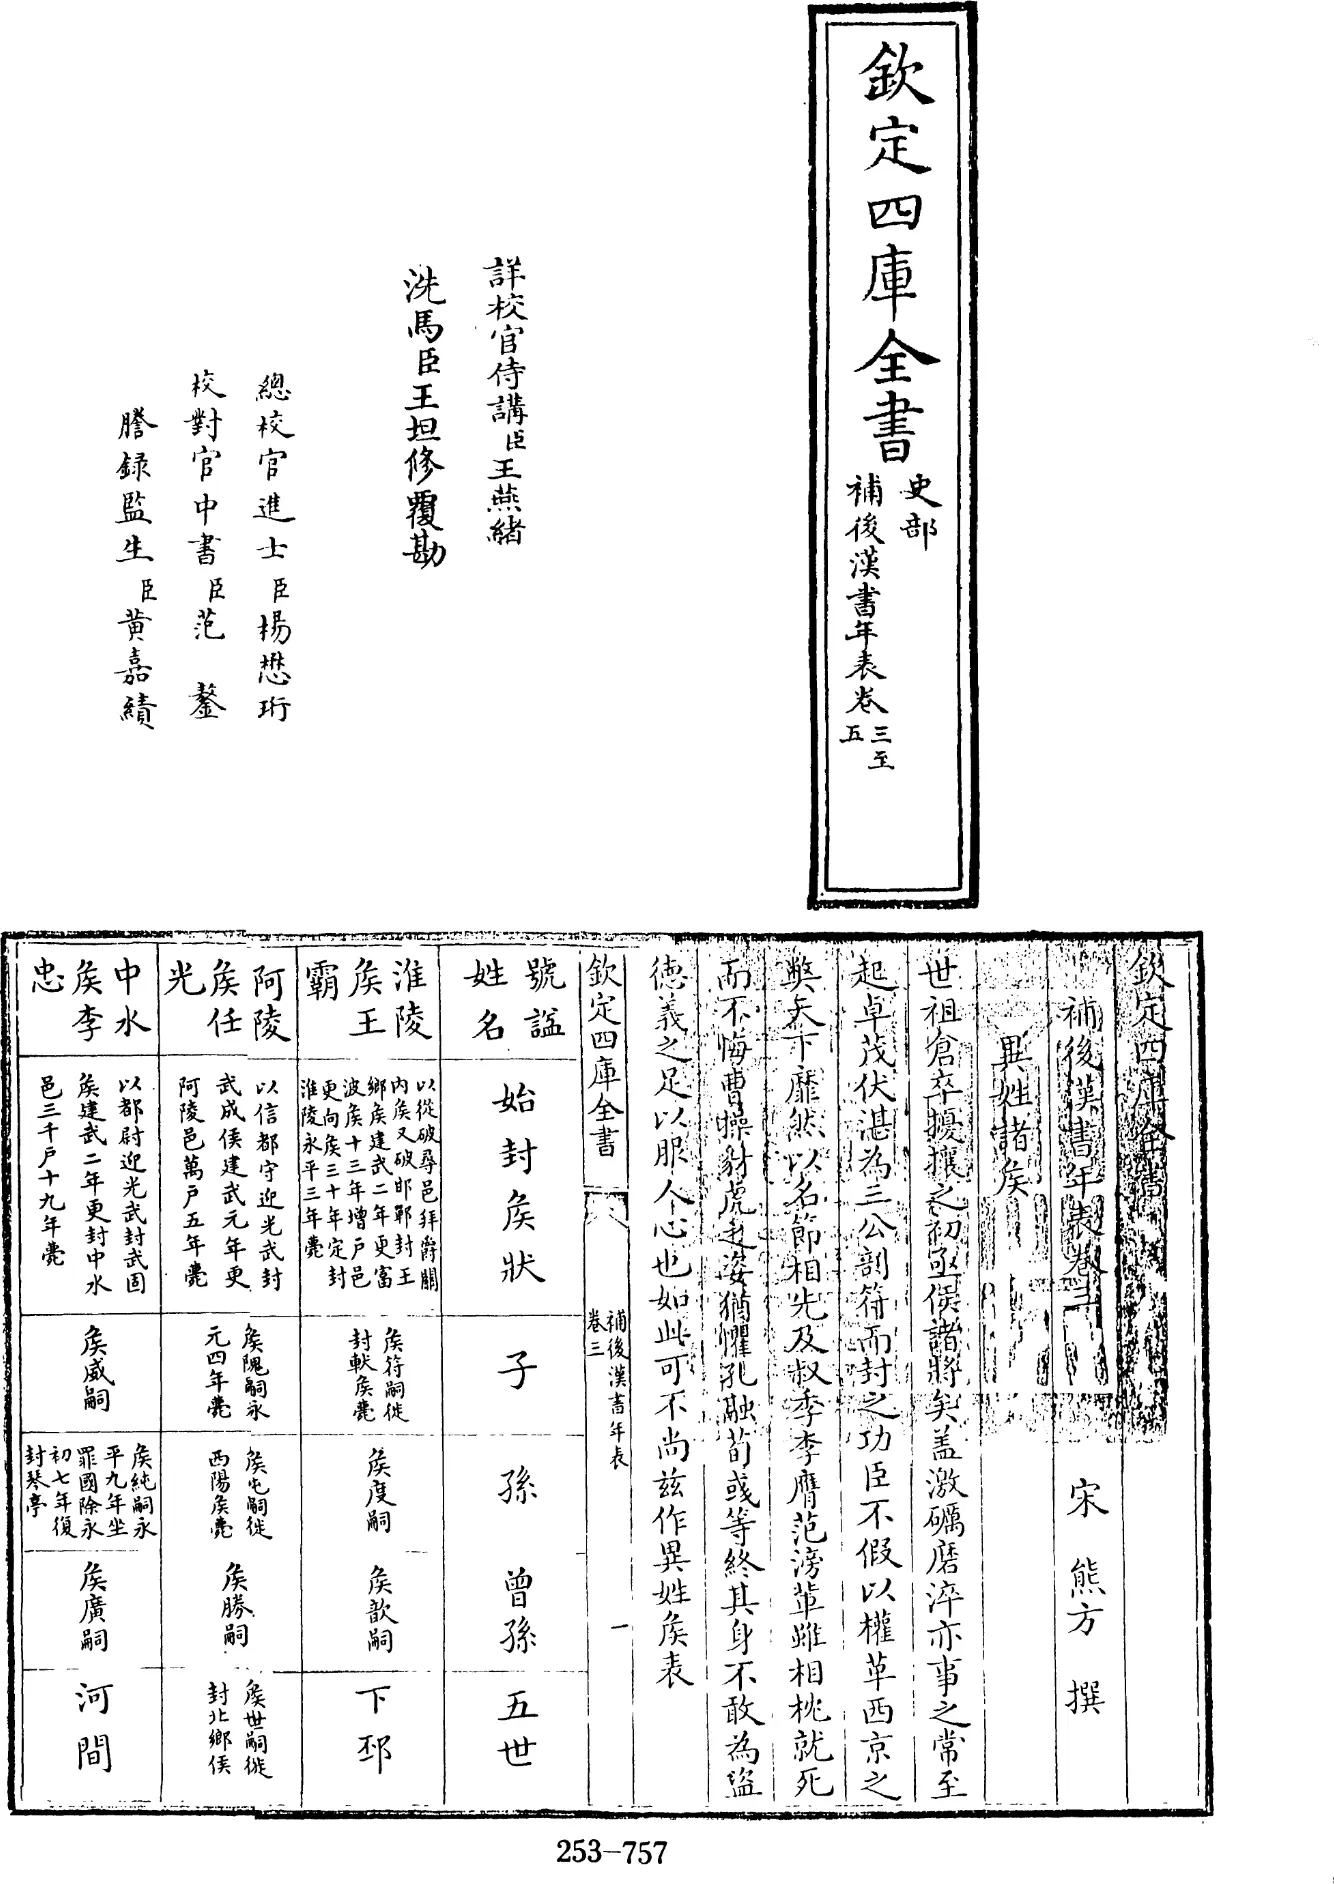 欽定四庫全書
史部
補後漢書年表卷三至
五
詳校官侍講臣王燕緒
洗馬臣王坦修覆勘
總校官進士臣楊懋珩
校對官中書臣范鏊
謄錄監生臣黄嘉績
欽定四庫全書
補後漢書年表卷三
宋 熊方 撰
異姓諸侯
世祖倉卒擾攘之初亟侯諸將矣盖激礪磨淬亦事之常至
起卓茂伏湛為三公剖符而封之功臣不假以權革西京之
獘天下靡然以名節相先及叔季李膺范滂軰雖相枕就死
而不悔曹操豺虎之姿猶懼孔融荀彧等終其身不敢為盜
徳義之足以服人心也如此可不尚兹作異姓矦表
欽定四庫全書
補後漢書年表
卷三
一
號謚
姓名
始封矦狀
子
孫
曽孫
五世
淮陵
矦王
霸
以從破尋邑拜爵關
内矦又破邯鄲封王
鄉矦建武二年更富
波矦十三年增户邑
更向矦三十年定封
淮陵永平三年薨
矦符嗣徙
封軑矦薨
矦度嗣
矦歆嗣
下邳
阿陵
矦任
光
以信都守迎光武封
武成侯建武元年更
阿陵邑萬户五年薨
矦隗嗣永
元四年薨
矦屯嗣徙
西陽矦薨
矦勝嗣
矦世嗣徙
封北鄉侯
中水
矦李
忠
以都尉迎光武封武固
矦建武二年更封中水
邑三千户十九年薨
矦威嗣
矦純嗣永
平九年坐
罪國除永
初七年復
封琴亭
矦廣嗣
河間
253-757